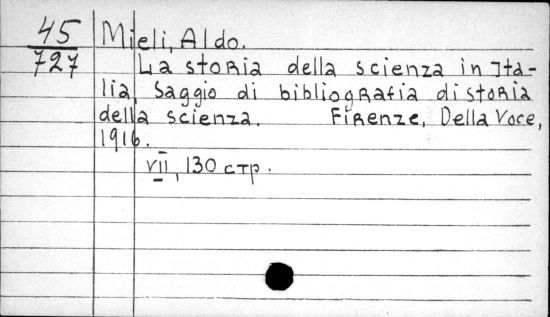 45
727
Mieli, Aldo.
La storia della scienza in Ita-
lia. Saggio di bibliografia di storia
della scienza. Firenze, Della Voce,
1916.
VII, 130 стр.